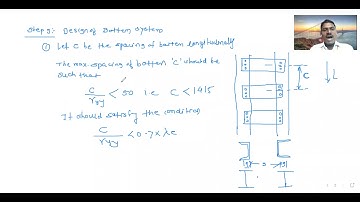 Step 5: Design of Batten System
① Let C be the spacing of batten longitudinally
The max. spacing of batten 'C' should be
such that
C / ryy < 50 i.e C < 1415
It should satisfy the condition
C / ryy < 0.7 x λe
C
L
s